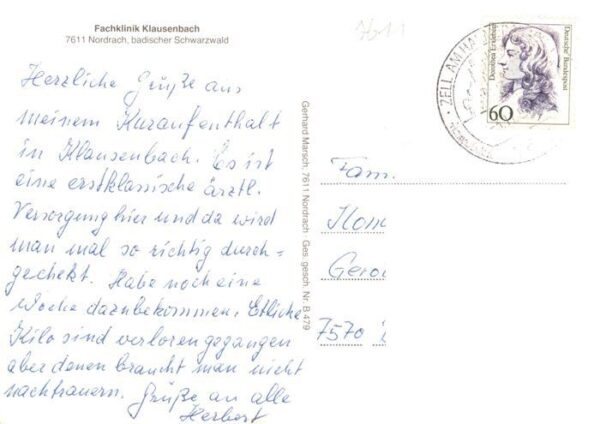 Fachklinik Klausenbach
7611 Nordrach, badischer Schwarzwald
7611
Herzliche Grüße aus
meinem Kuraufenthalt
in Klausenbach. Es ist
eine erstklassische ärztl.
Versorgung hier und da wird
man mal so richtig durch=
gecheckt. Habe noch eine
Woche dazubekommen. Etliche
Kilo sind verloren gegangen
aber denen braucht man nicht
nachtrauern. Grüße an alle
Herbert
Gerhard Marsch, 7611 Nordrach Ges. gesch. Nr. B 479
ZELL AM HA
Dorothea Erxleben
Deutsche Bundespost
60
Fam.
Hom
Gero
7570